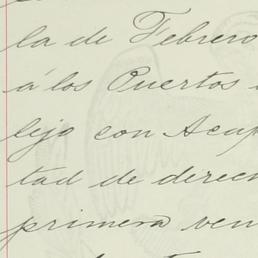 la de Febrero
á los Puertos
lejo con Acap
tad de derec
primera ven